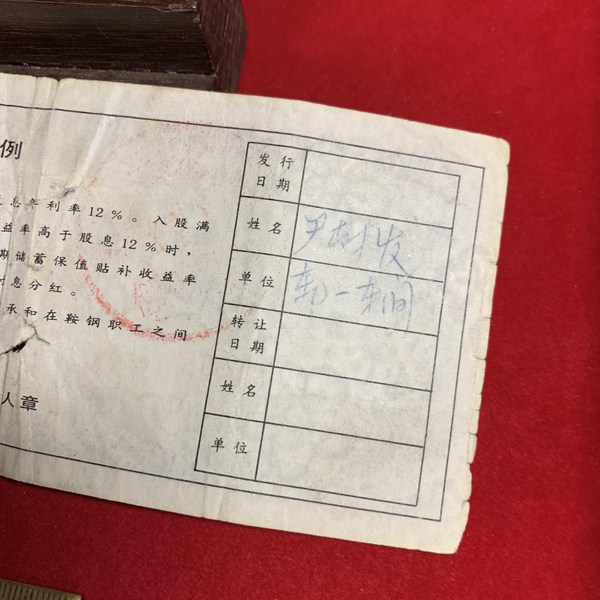 例
息年利率12％。入股满
益率高于股息12％时，
期储蓄保值贴补收益率
息分红。
承和在鞍钢职工之间
人章
发行日期
姓名 尹树发
单位 一车间
转让日期
姓名
单位